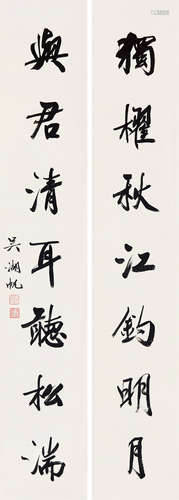 獨櫂秋江鈎明月
與君清耳聽松湍
吳湖帆